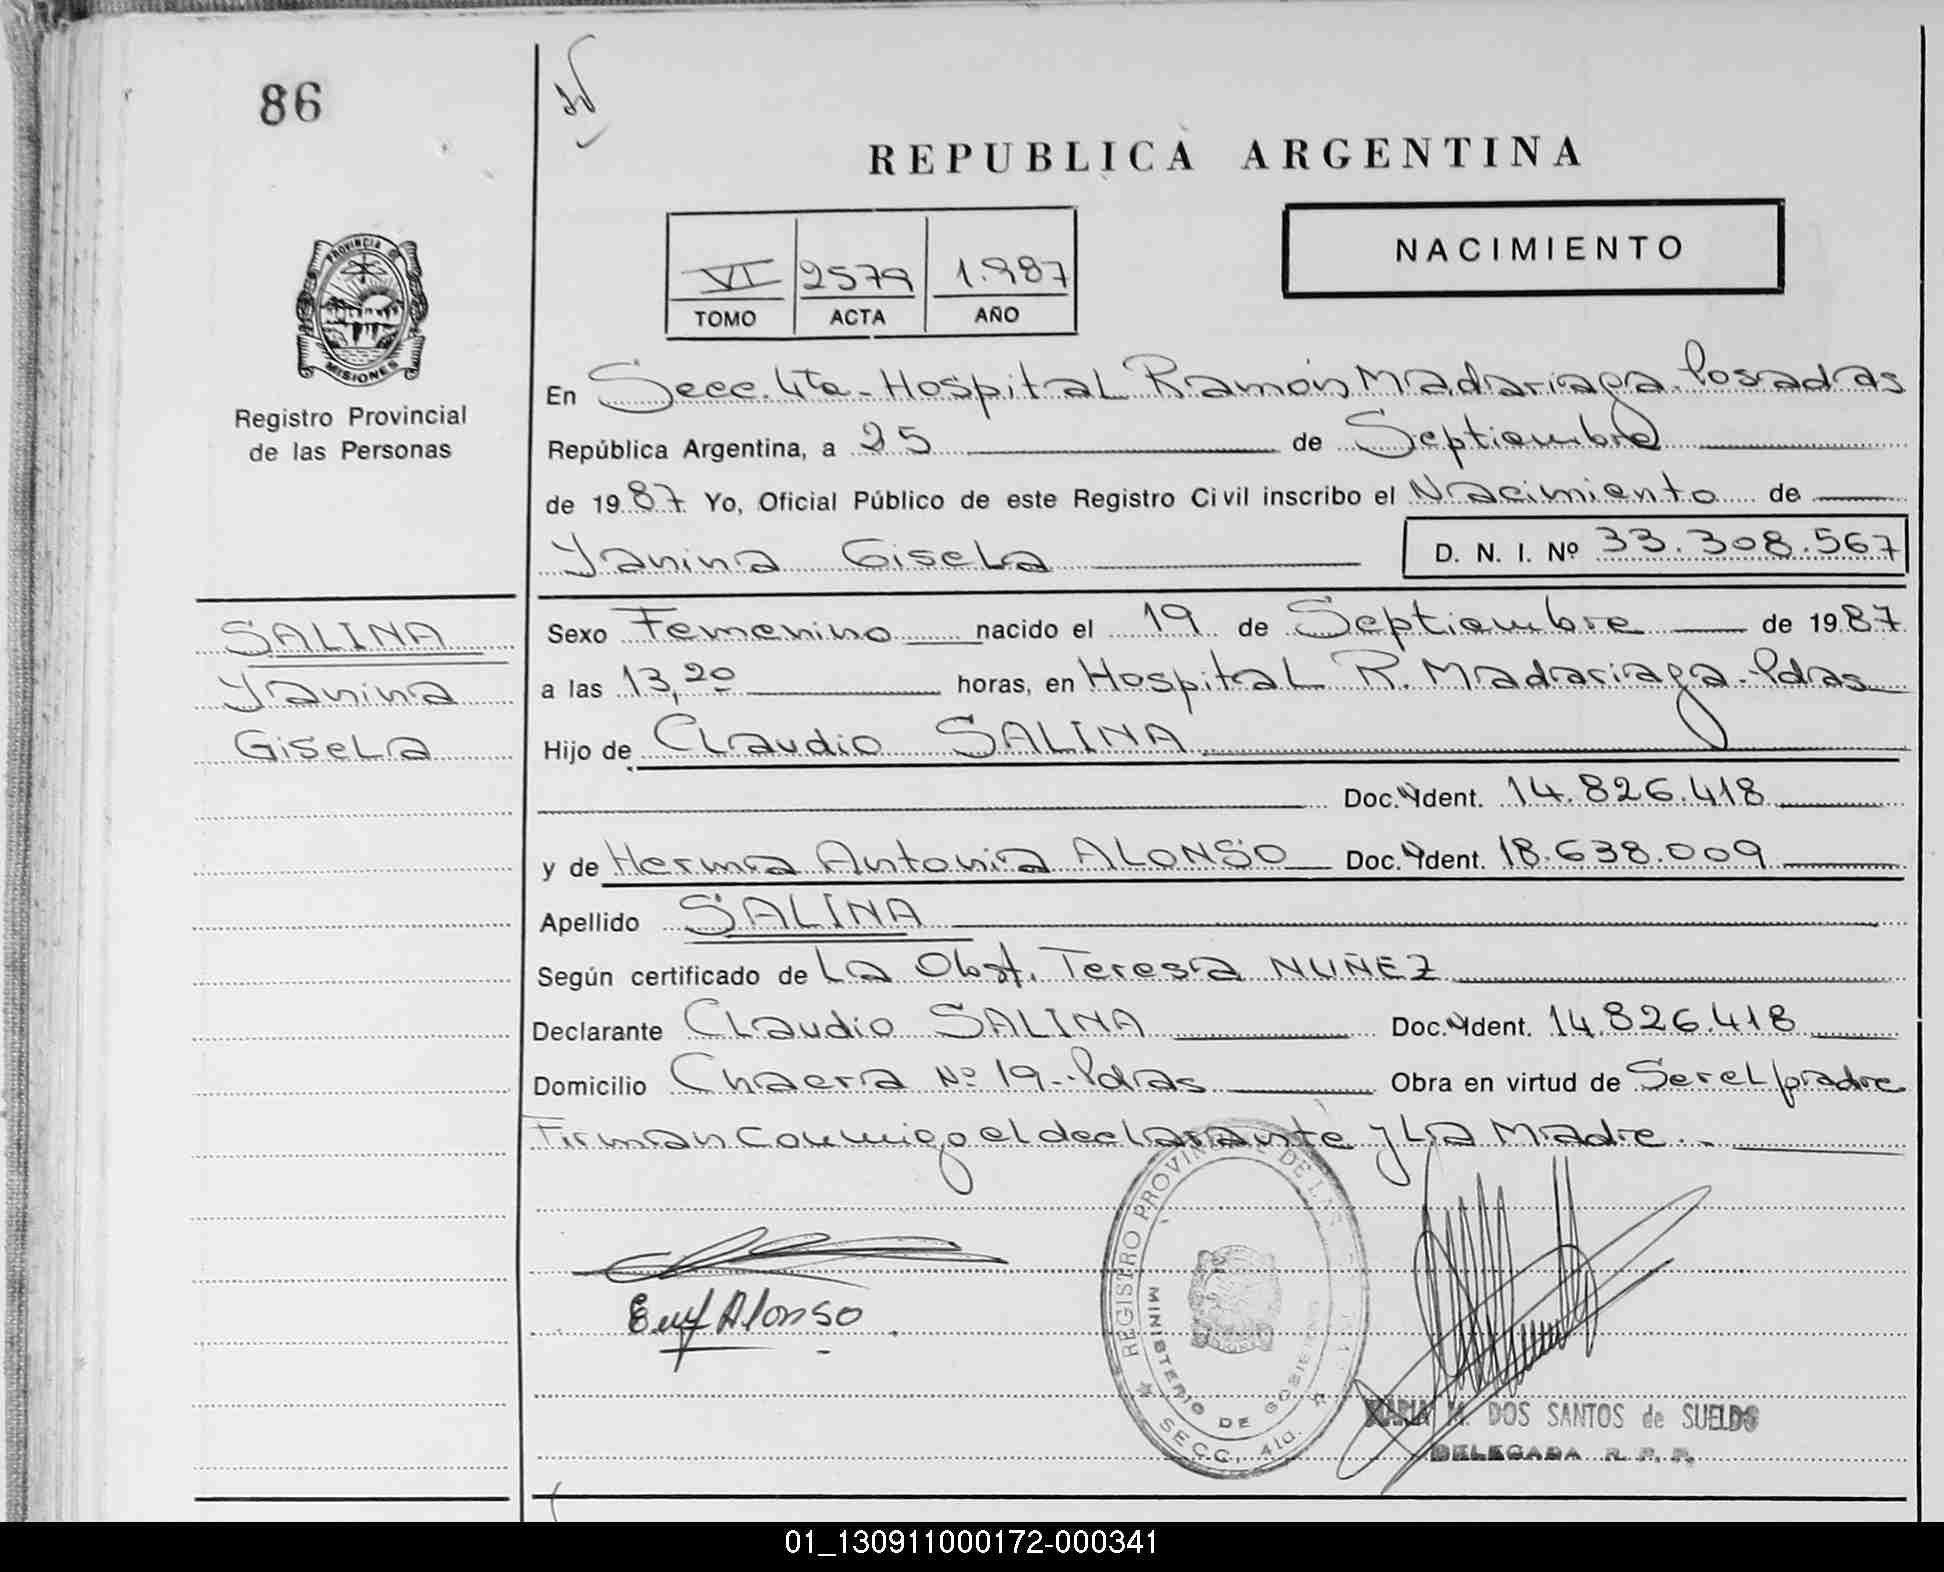 86
REPUBLICA ARGENTINA
NACIMIENTO
VI 2579 1.987
TOMO ACTA AÑO
PROVINCIA DE
MISIONES
Registro Provincial
de las Personas
En Secc. 4ta - Hospital Ramón Madariaga. Posadas
República Argentina, a 25 de Septiembre
de 1987 Yo, Oficial Público de este Registro Civil inscribo el Nacimiento de
Yanina Gisela D. N. I. Nº 33.308.567
SALINA
Yanina
Gisela
Sexo Femenino nacido el 19 de Septiembre de 1987
a las 13,20 horas, en Hospital R. Madariaga. Pdas
Hijo de Claudio SALINA
Doc. Ydent. 14.826.418
y de Herma Antonia ALONSO Doc. Ydent. 18.638.009
Apellido SALINA
Según certificado de La Obst. Teresa NUÑEZ
Declarante Claudio SALINA Doc. Ydent. 14.826.418
Domicilio Chacra Nº 19 - Pdas Obra en virtud de Ser el padre
Firman conmigo el declarante y La Madre. -
Alonso
REGISTRO PROVINCIAL DE LAS
MINISTERIO DE GOBIERNO
SECC. 4ta.
MARIA M. DOS SANTOS de SUELDO
DELEGADA R. P. P.
01_130911000172-000341